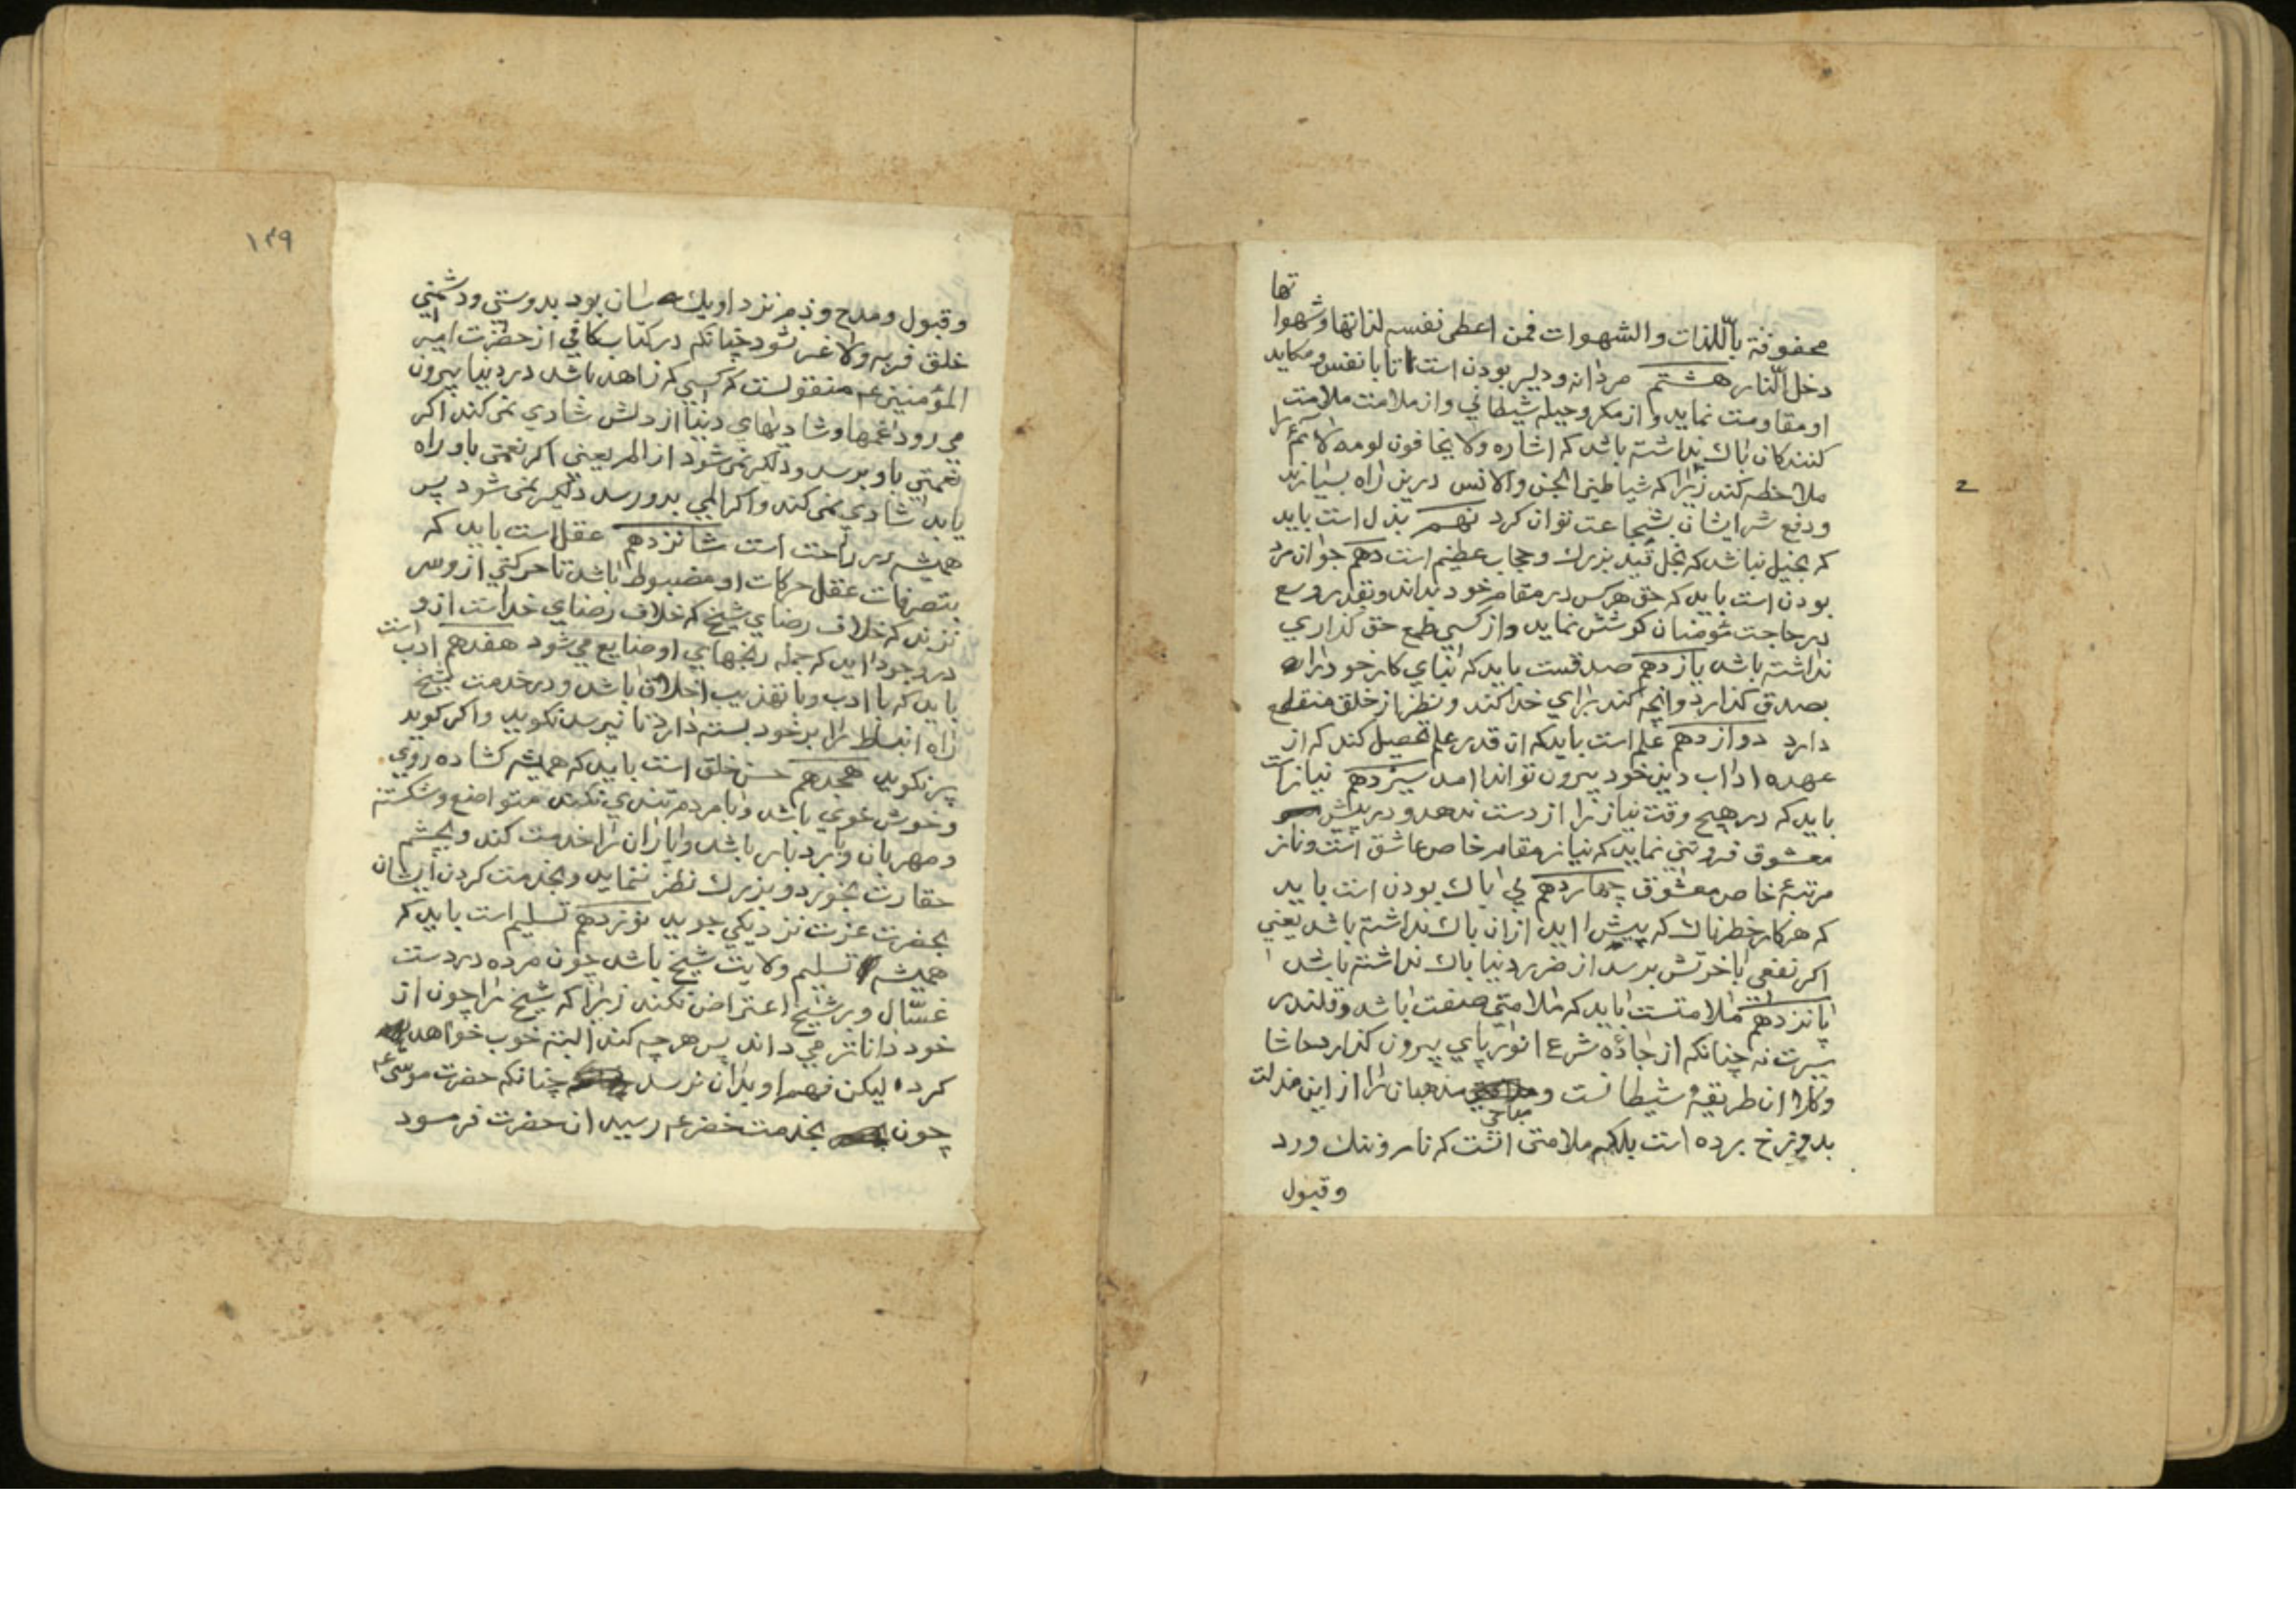 محفوفة باللذات والشهوات فمن اعطی نفسه لذاتها وشهوا
تها
دخل النار هشتم مردانه و دلیر بودن است تا با نفس و مکاید
او مقاومت نماید و از مکر و حیله شیطانی و از ملامت ملامت
کنندکان باك نداشته باشد که اشاره ولا یخافون لومه لائم را
ملاحظه کند زیرا که شیاطین الجن والانس درین راه بسیارند
ودفع شر ایشان بشجاعت توان کرد نهم بذل است باید
که بخیل نباشد که بخل قید بزرك وحجاب عظیم است دهم جوانمرد
بودن است باید که حق هرکس در مقام خود بداند وبقدر وسع
در حاجت مؤمنان کوشش نماید واز کسی طمع حق کذاری
نداشته باشد یازدهم صدقست باید که بنای کار خود را
بصدق کذارد وانچه کند برای خدا کند ونظر از خلق منقطع
دارد دوازدهم علم است باید که ان قدر علم تحصیل کند که از
عهده اداب دین خود بیرون تواند امد سیزدهم نیاز است
باید که در هیچ وقت نیاز را از دست ندهد و در پیش
معشوق فروتنی نماید که نیاز مقام خاص عاشق است وناز
مرتبهٔ خاص معشوق چهاردهم بی باك بودن است باید
که هرکار خطرناك که پیش اید ازان باك نداشته باشد یعنی
اکر نفعی باخرتش برسد از ضرر دنیا باك نداشته باشد
پانزدهم ملامتست باید که ملامتی صفت باشد وقلندر
سیرت نه چنانکه از جادهٔ شرع انور پای بیرون کذارد حاشا
وکلا ان طریقهٔ شیطانست و مباحی مذهبان را از این مذلت
بدوزخ برده است بلکه ملامتی انست که نام وننك ورد
وقبول
۱۴۹
وقبول ومدح وذم نزد او یکسان بود بدوستی ودشمنی
خلق فربه ولاغر نشود چنانکه در کتاب کافی از حضرت امیر
المؤمنین ع م منقولست که کسی که زاهد باشد در دنیا بیرون
می رود غمها وشادیهای دنیا از دلش شادی نمی کند اکر
نعمتی باو برسد ودلکیر نمی شود از الم یعنی اکر نعمتی باو راه
یابد شادی نمی کند واکر المی بدو رسد دلکیر نمی شود پس
همیشه در راحت است شانزدهم عقل است باید که
بتصرفات عقل حرکات او مضبوط باشد تا حرکتی از وسر
نزند که خلاف رضای شیخ که خلاف رضای خداست ازو
در وجود اید که جمله رنجهای او ضایع می شود هفدهم ادب است
باید که با ادب وبا تهذیب اخلاق باشد ودر خدمت شیخ
راه انبساط را بر خود بسته دارد تا نپرسد نکوید واکر کوید
پر نکوید هجدهم حسن خلق است باید که همیشه کشاده روی
وخوش خوی باشد وبا مردم تندی نکند متواضع وشکسته
ومهربان وبردبار باشد ویاران را خدمت کند وبچشم
حقارت بخورد وبزرك نظر ننماید وبخدمت کردن ایشان
بحضرت عزت نزدیکی جوید نوزدهم تسلیم است باید که
همیشه تسلیم ولایت شیخ باشد چون مرده در دست
غسّال وبر شیخ اعتراض نکند زیرا که شیخ را چون از
خود داناتر می داند پس هر چه کند البته خوب خواهد
کرد لیکن فهم او بدان نرسد چنانکه حضرت موسی ع م
چون بخدمت خضر ع م رسید ان حضرت فرمود